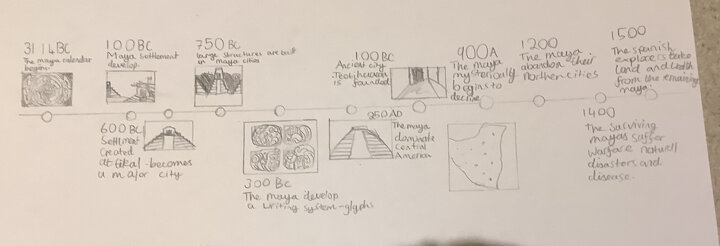 3114BC
The maya calendar
begins.
100BC
Maya Settlement
develop.
750 BC
large structures are built
in maya cities
100BC
Ancient city
Teotihuacan
is founded
900A
The maya
mysteriously
begins to
decline
1200
The maya
abandon their
Northern cities
1500
The spanish
explore is take
land and wealth
from the remaining
maya.
600BC
Settlment
Created
at tikal-becomes
a major city
300 BC
The maya develop
a writing system-glyphs
250 AD
The maya
dominate
Central
America
1400
The surviving
mayas suffer
warfare naturll
disasters and
disease.